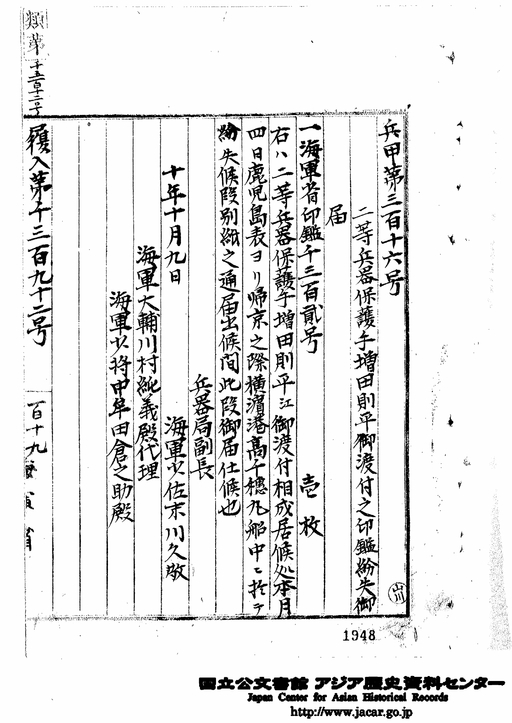 兵甲第三百十六号
二等兵器保護手増田則平御渡付之印鑑紛失御
届
一海軍省印鑑千三百貳号 壱枚
右ハ二等兵器保護手増田則平江御渡付相成居候処本月
四日鹿児島表ヨリ帰京之際横濱港高千穂丸船中ニ於テ
紛失候段別紙之通届出候間此段御届仕候也
兵器局副長
十年十月九日 海軍少佐末川久敬
海軍大輔川村純義殿代理
海軍少将中牟田倉之助殿
履入第千三百九十二号
類第
千五百十二号
百十九
海軍省
山川
1948
国立公文書館 アジア歴史資料センター
Japan Center for Asian Historical Records
http://www.jacar.go.jp